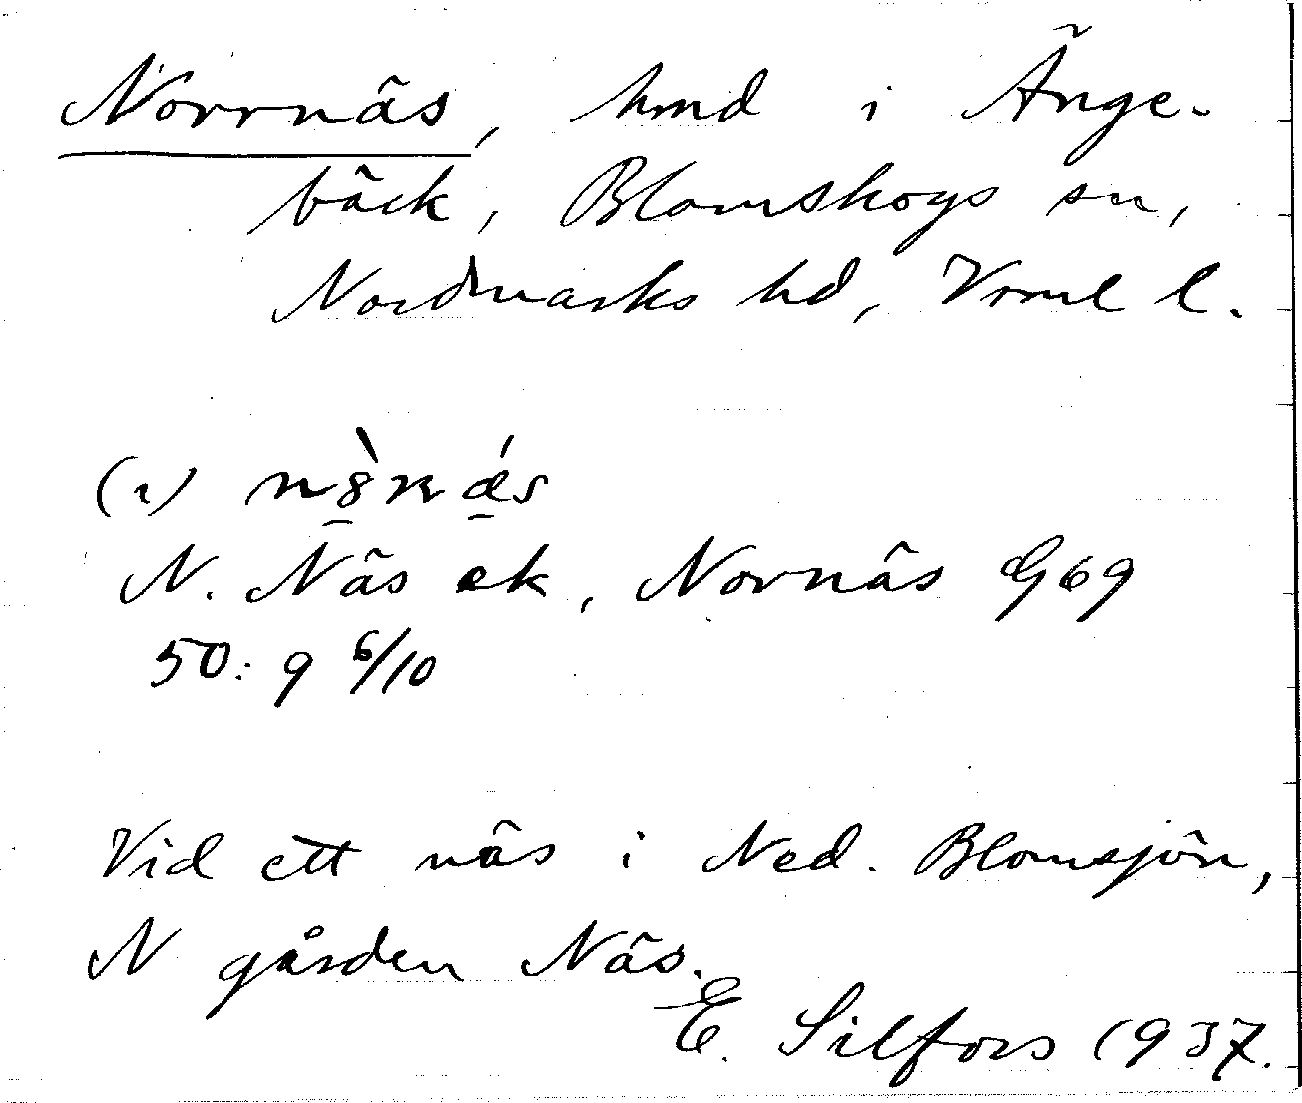 Norrnäs, hmd i Änge-
bäck, Blomskogs sn,
Nordmarks hd, Vrml l.
(i)
N. Näs ek, Nornäs G69
50: 9 6/10
Vid ett näs i Ned. Blomsjön,
N gården Näs.
E. Silfors 1937.